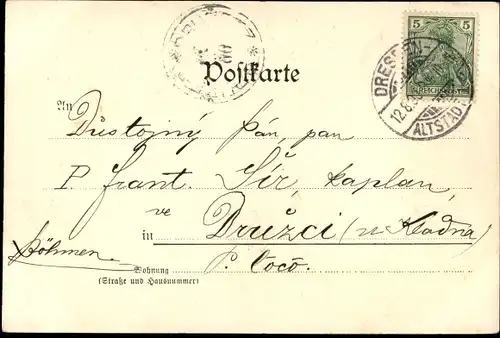 5 5
REICHSPOST
DRESDEN-
12.8.
ALTSTADT
Postkarte
An
Důstojný Pán, pan
P. frant. Šír, kaplan,
ve
in Družci (u Kladna)
Böhmen P. Točo.
Wohnung
(Straße und Hausnummer)